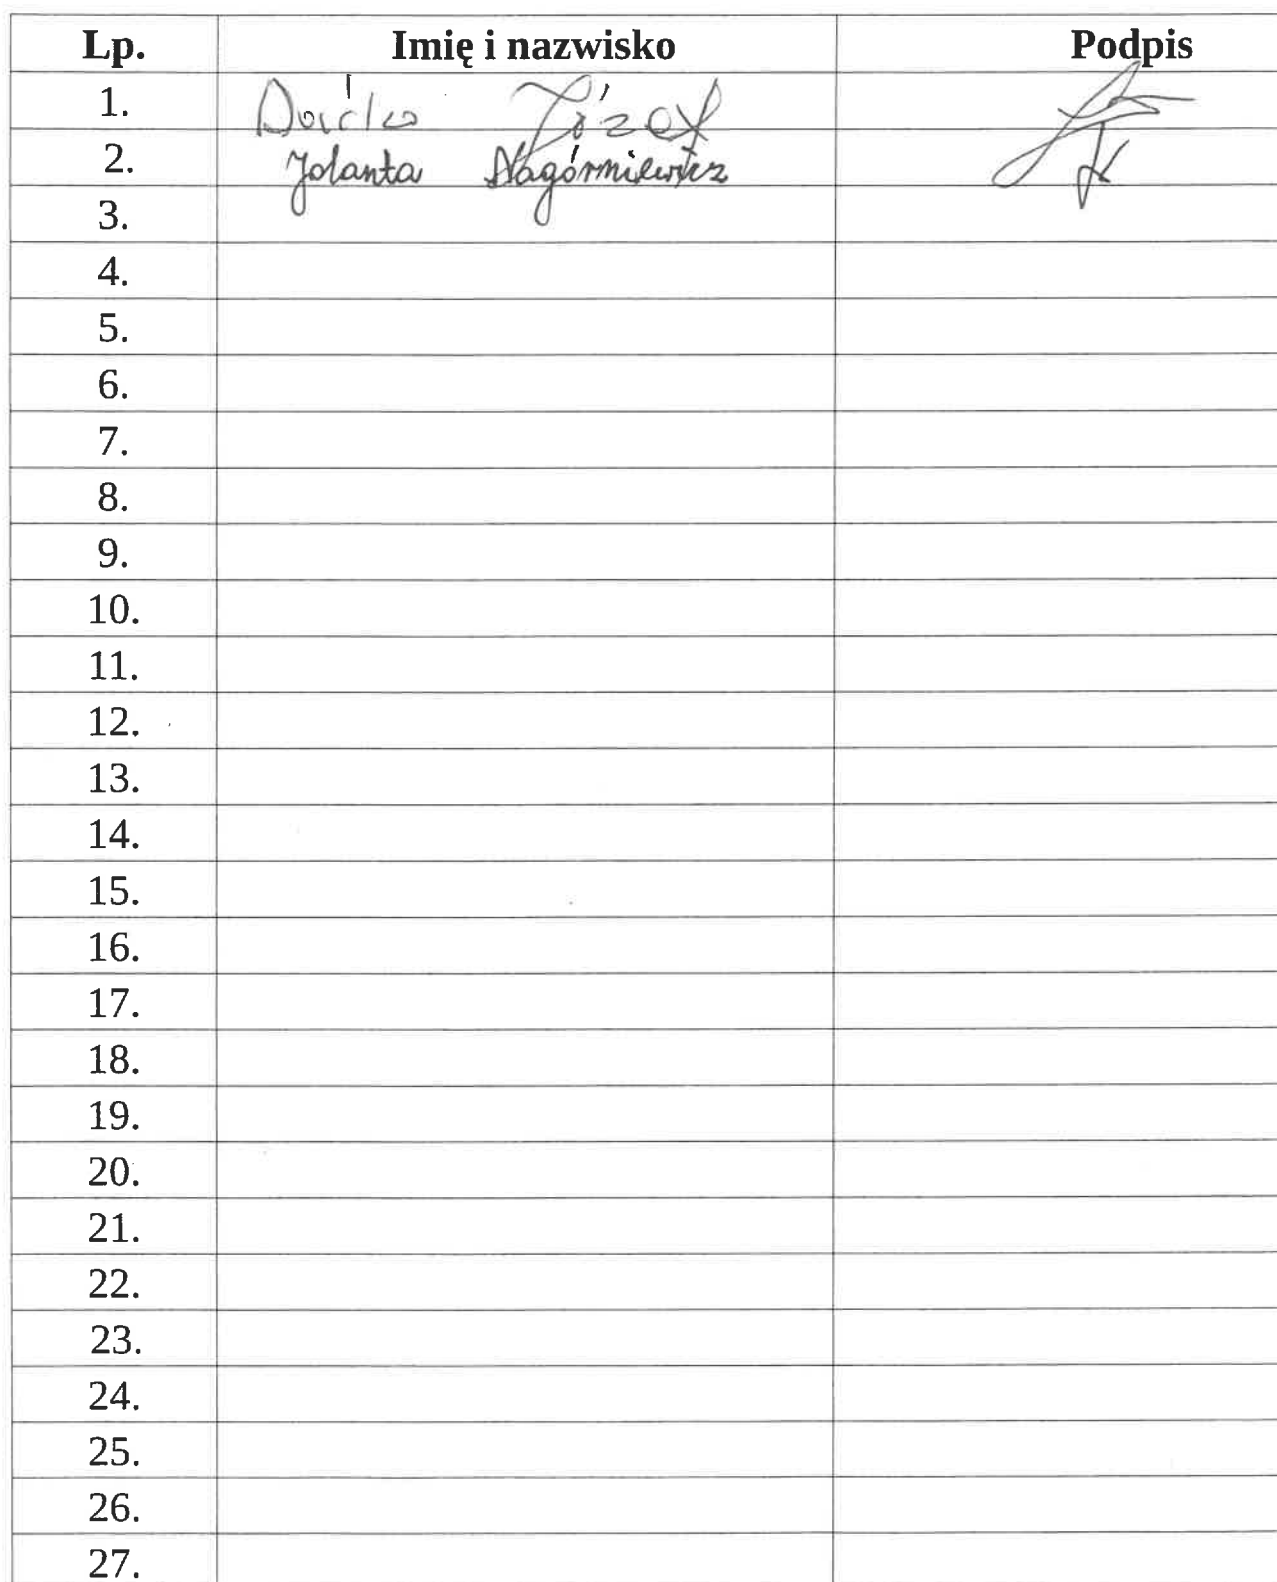 Lp. Imię i nazwisko Podpis
1. Józef
2. Jolanta Nagórniewicz
3.
4.
5.
6.
7.
8.
9.
10.
11.
12.
13.
14.
15.
16.
17.
18.
19.
20.
21.
22.
23.
24.
25.
26.
27.